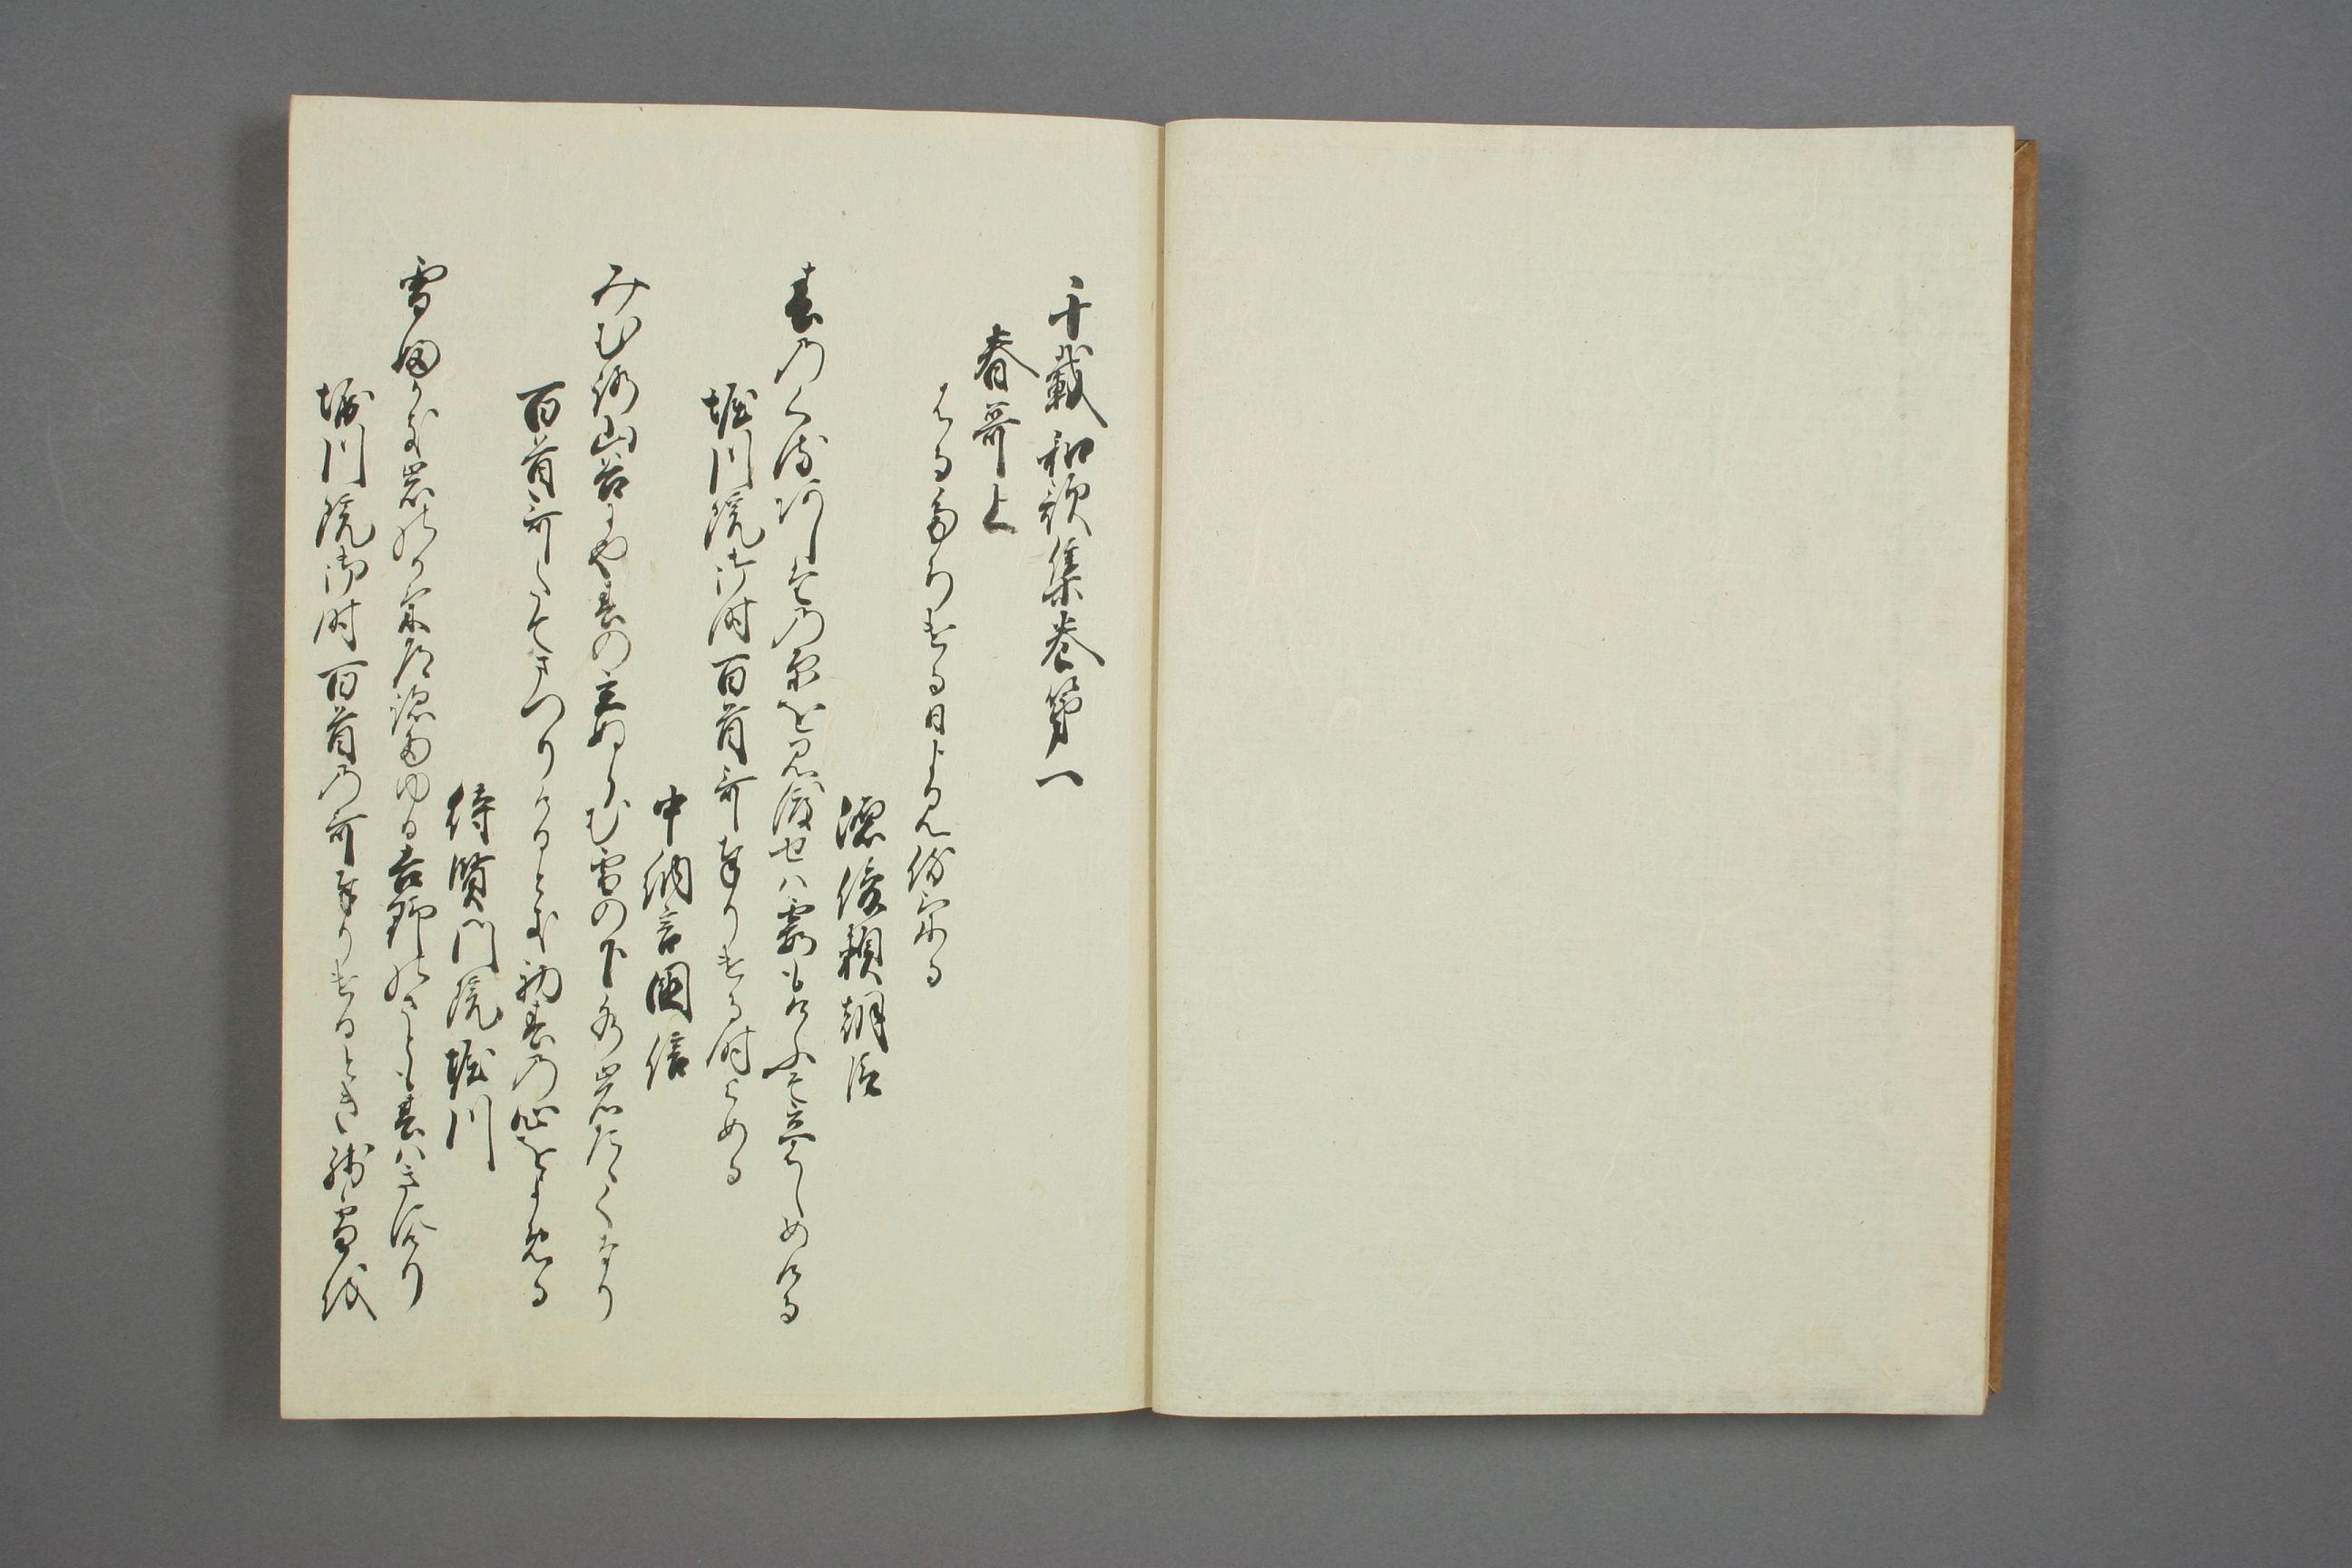 千載和歌集巻第一
春哥上
はるたちける日よみ侍ける
源俊頼朝臣
春のくるあしたの原を見渡せは霞もけふそ立はしめける
堀川院御時百首哥奉りける時よめる
中納言国信
みむろ山谷にや春の立ぬらむ雪の下水岩たゝくなり
百首哥たてまつりけるとき初春の心をよめる
待賢門院堀川
雪ふかき岩のかけ道跡たゆる吉野のさとも春はきにけり
堀川院御時百首の哥奉りけるとき残雪を